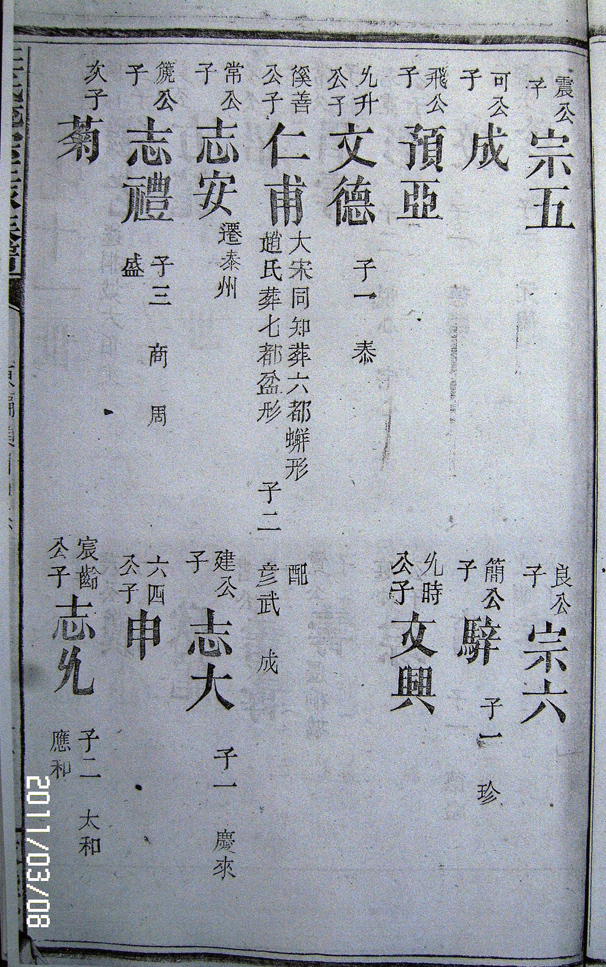 震公子 宗五
良公子 宗六
可公子 成
簡公子 騂 子一 珍
飛公子 預亞
允升公子 文德 子一 泰
允時公子 文興
徯善公子 仁甫 大宋同知葬六都蠏形 配
趙氏葬七都盆形 子二 彦武 成
常公子 志安 遷泰州
建公子 志大 子一 慶來
篪公子 志禮 子三 商 周
盛
六四公子 申
次子 菊
宸齡公子 志允 子二 太和
應和
2011/03/08